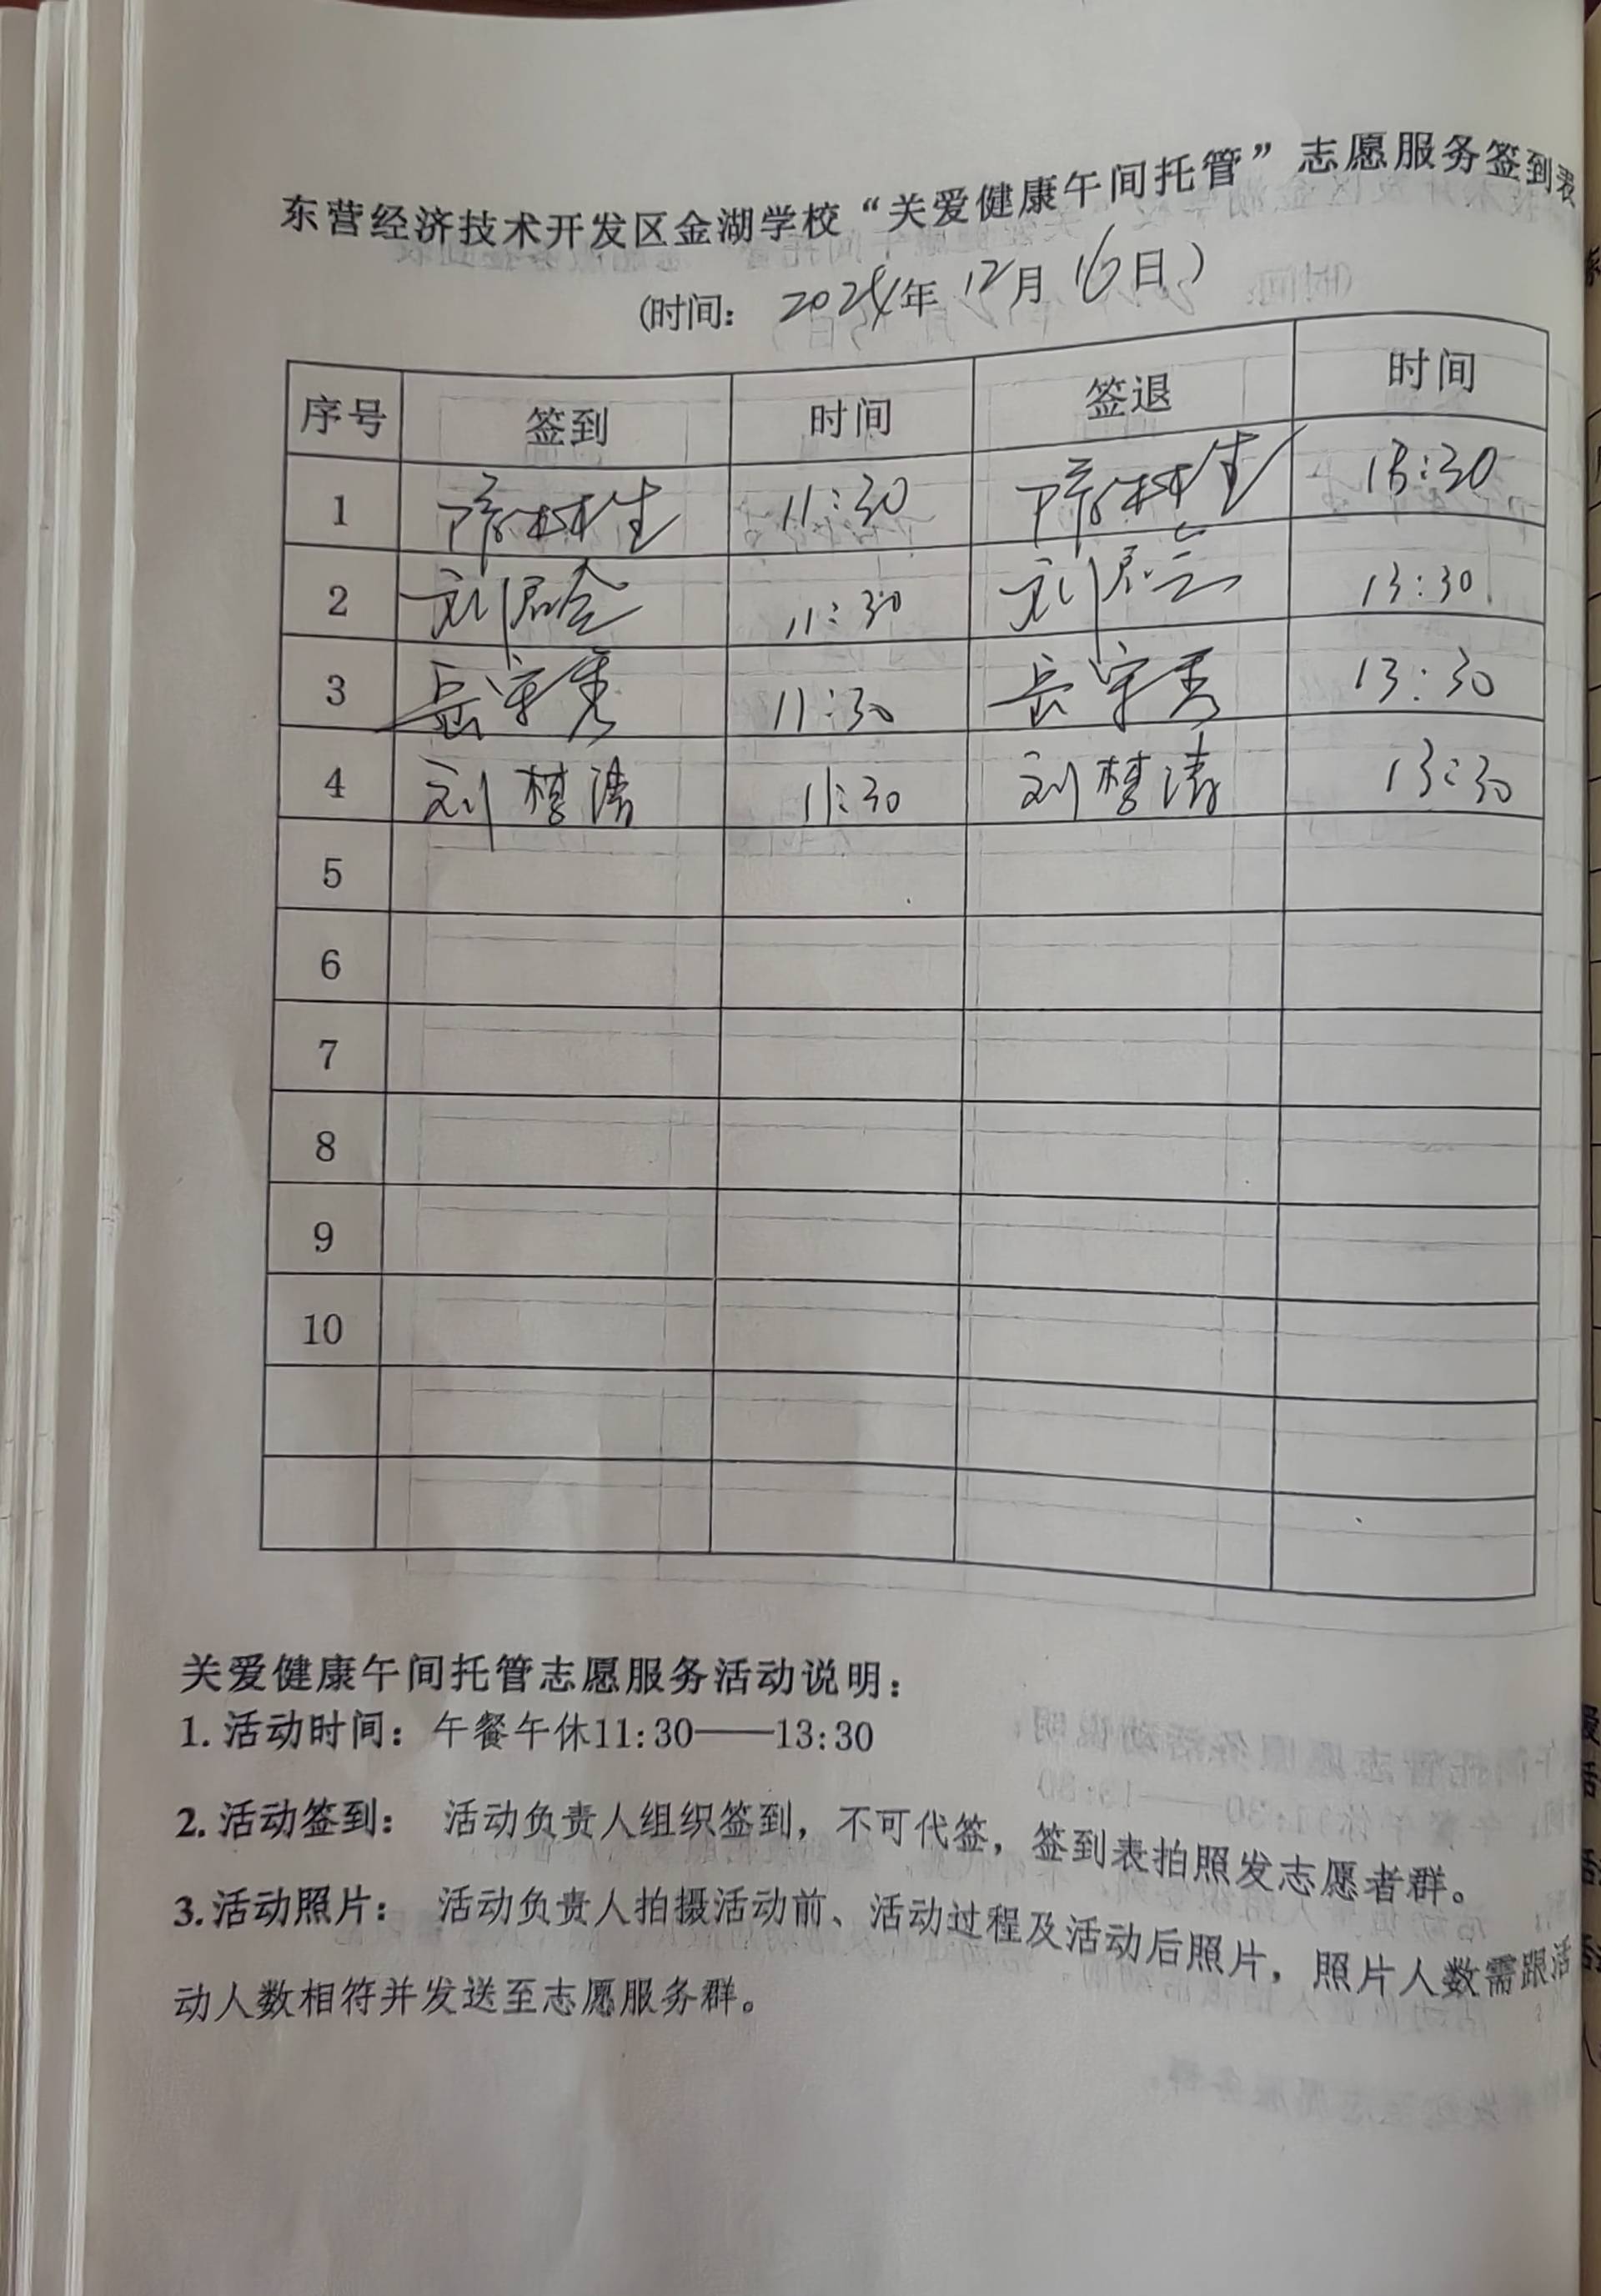 东营经济技术开发区金湖学校“关爱健康午间托管”志愿服务签到表
(时间: 2024年 12月 16日)
序号 签到 时间 签退 时间
1 11:30 13:30
2 刘 11:30 刘 13:30
3 岳宗秀 11:30 岳宗秀 13:30
4 刘梦涛 11:30 刘梦涛 13:30
5
6
7
8
9
10
关爱健康午间托管志愿服务活动说明:
1. 活动时间: 午餐午休11:30——13:30
2. 活动签到: 活动负责人组织签到，不可代签，签到表拍照发志愿者群。
3. 活动照片: 活动负责人拍摄活动前、活动过程及活动后照片，照片人数需跟活
动人数相符并发送至志愿服务群。